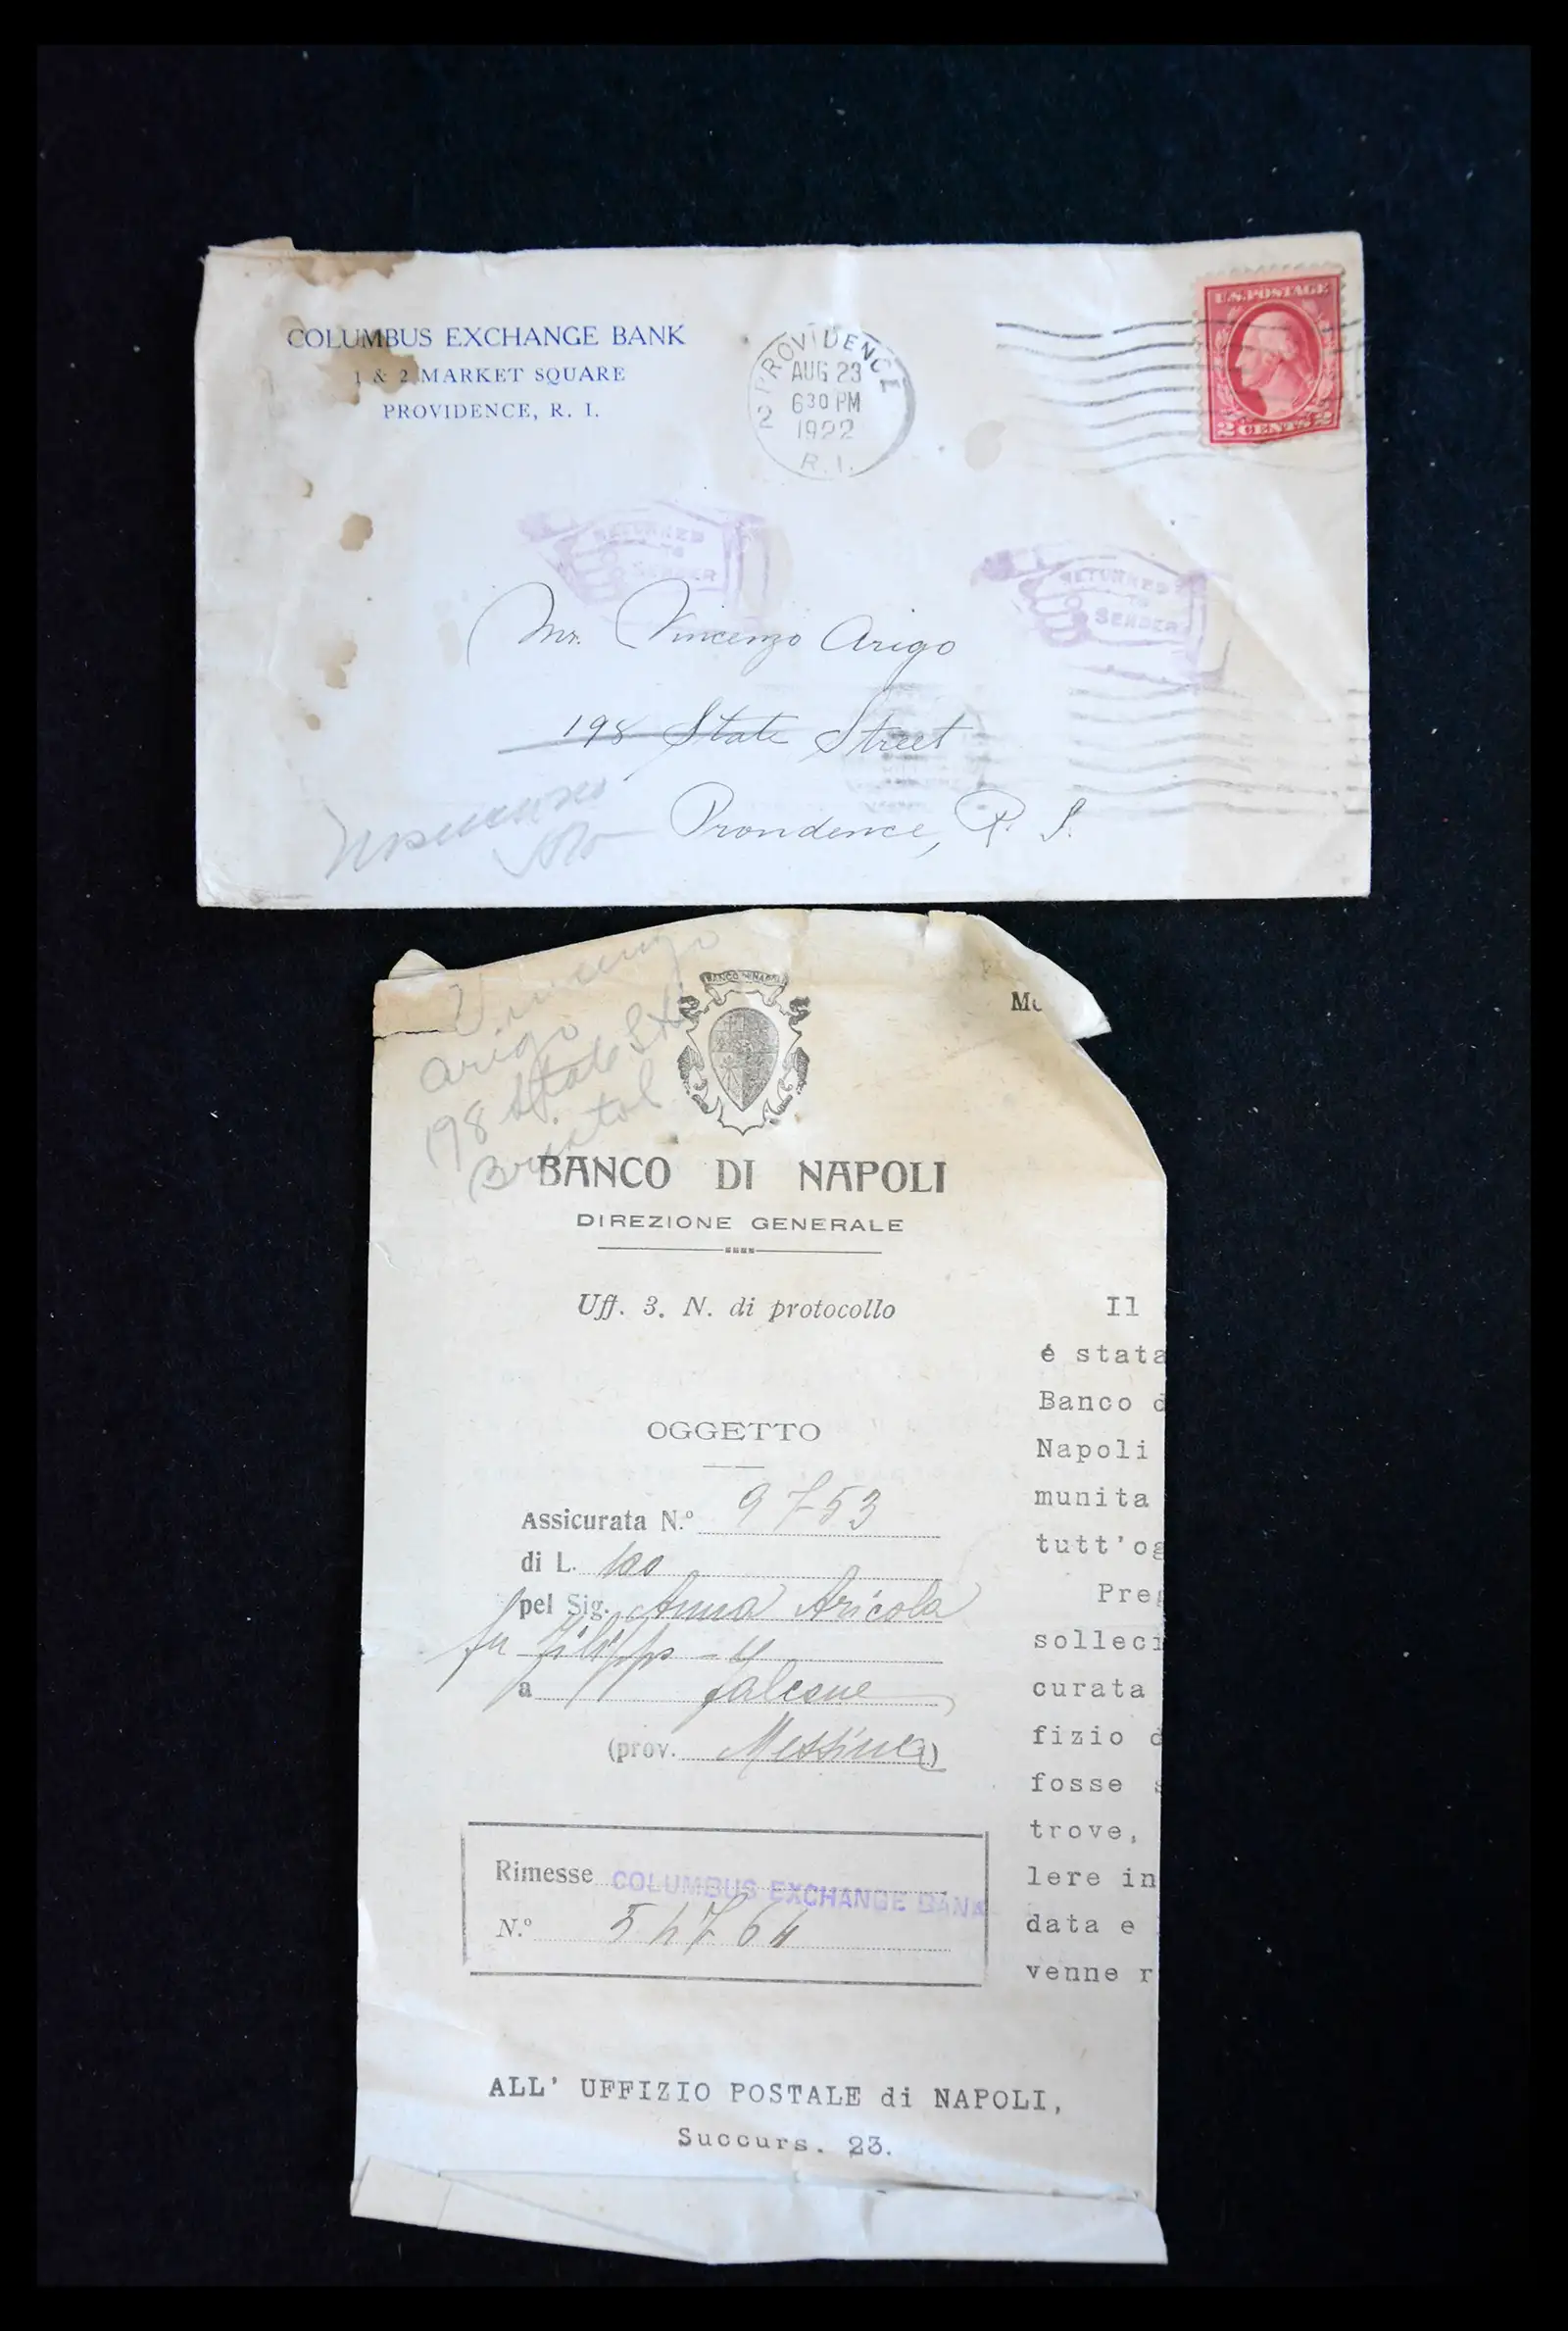 COLUMBUS EXCHANGE BANK
1 & 2 MARKET SQUARE
PROVIDENCE, R. I.
2 PROVIDENCE
AUG 23
630 PM
1922
R.I.
U.S. POSTAGE
2 CENTS 2
RETURNED
TO
SENDER
RETURNED
TO
SENDER
Mr. Vincenzo Arigo
198 State Street
Providence, R. I.
Vincenzo
Arigo
198 State St
Bristol
BANCO DI NAPOLI
BANCO DI NAPOLI
DIREZIONE GENERALE
Uff. 3. N. di protocollo
OGGETTO
Assicurata N.º 9753
di L. 100
pel Sig. Anna Aricola
fu Filippo
a Falcone
(prov. Messina)
Rimesse COLUMBUS EXCHANGE BANK
N.º 54764
ALL' UFFIZIO POSTALE di NAPOLI,
Succurs. 23.
Il
é stata
Banco d
Napoli
munita
tutt'og
Preg
solleci
curata
fizio d
fosse s
trove,
lere in
data e
venne r